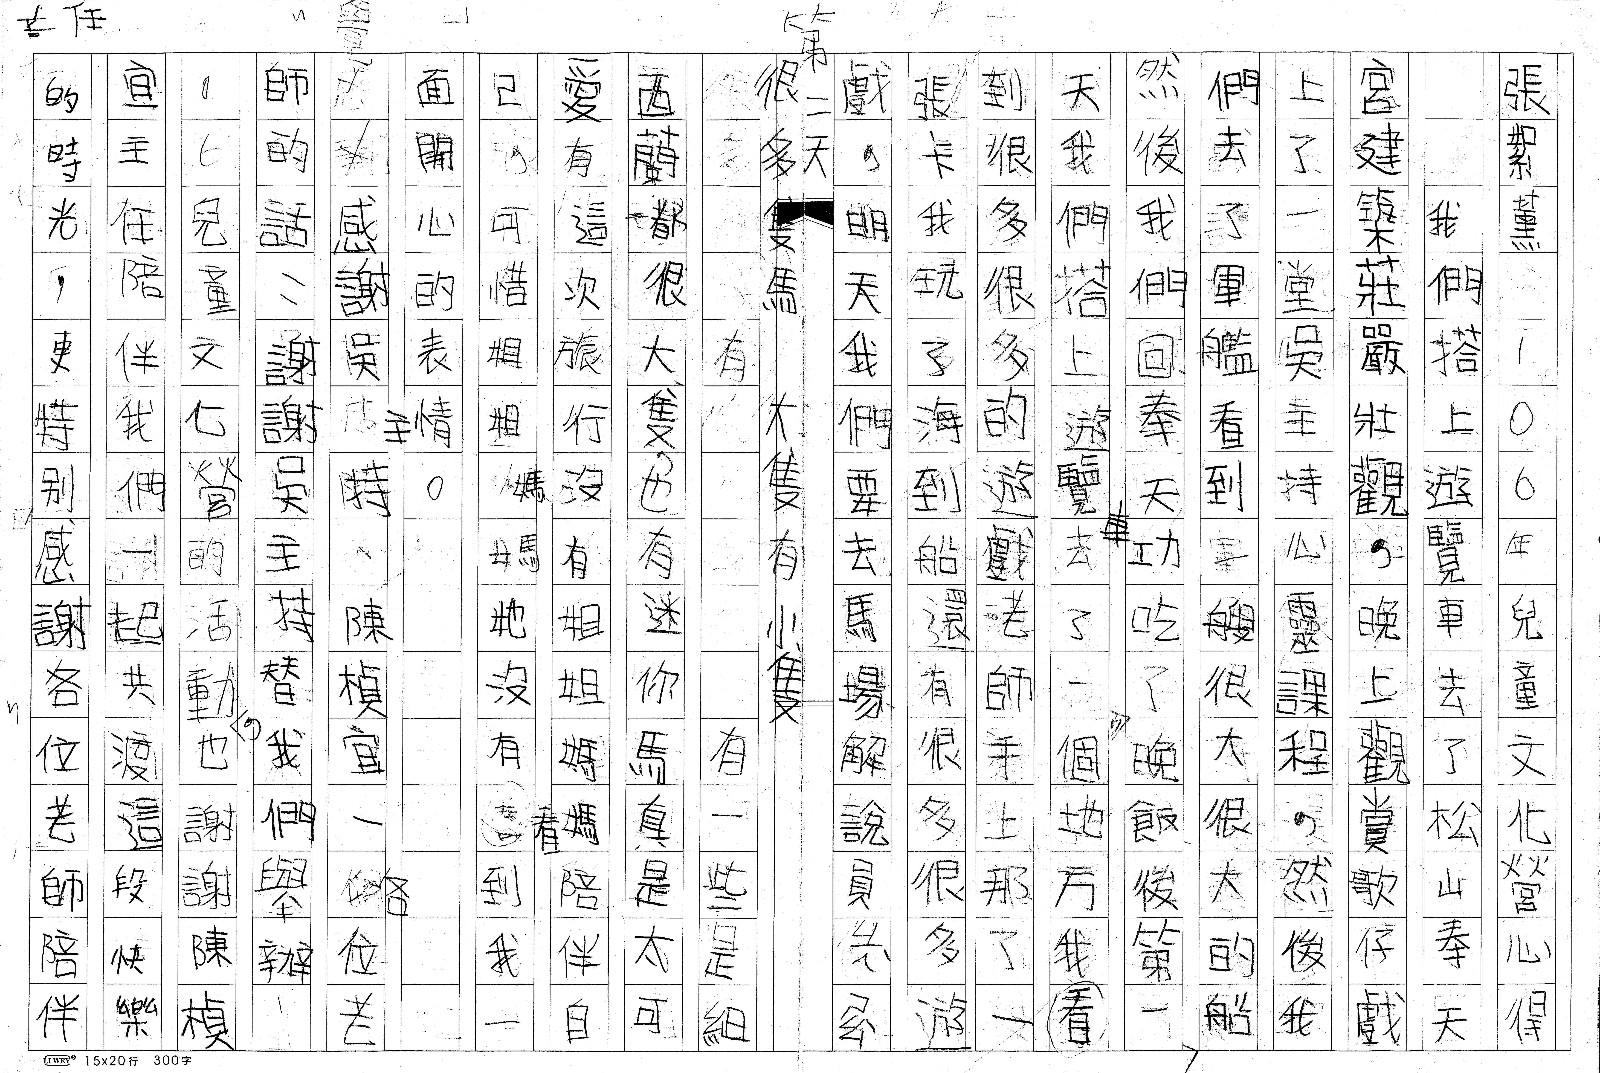 張絮薰 106年兒童文化營心得
我們搭上遊覽車去了松山奉天
宮建築莊嚴壯觀,晚上觀賞歌仔戲
上了一堂吳主持心靈課程,然後我
們去了軍艦看到 艘很大很大的船
然後我們回奉天功吃了晚飯後第一
天我們搭上遊覽車去了一個地方我看
到很多很多的遊戲老師手上那了一
張卡我玩了海到船還有很多很多遊
戲,明天我們要去馬場解說員
第二天
很多隻馬 大隻有小隻
有 有一些是紐
西蘭都很大隻,也有迷你馬真是太可
愛有這次旅行沒有姐姐媽媽陪伴自
己,可惜姐姐媽媽她沒有看到我一
面開心的表情。
感謝吳主持、陳楨宜一位各位老
師的話 謝謝吳主持替我們舉辦
兒童文化營的活動也謝謝陳楨
宜主任陪伴我們一起共渡這段快樂
的時光,更特別感謝各位老師陪伴
主任
15x20行 300字